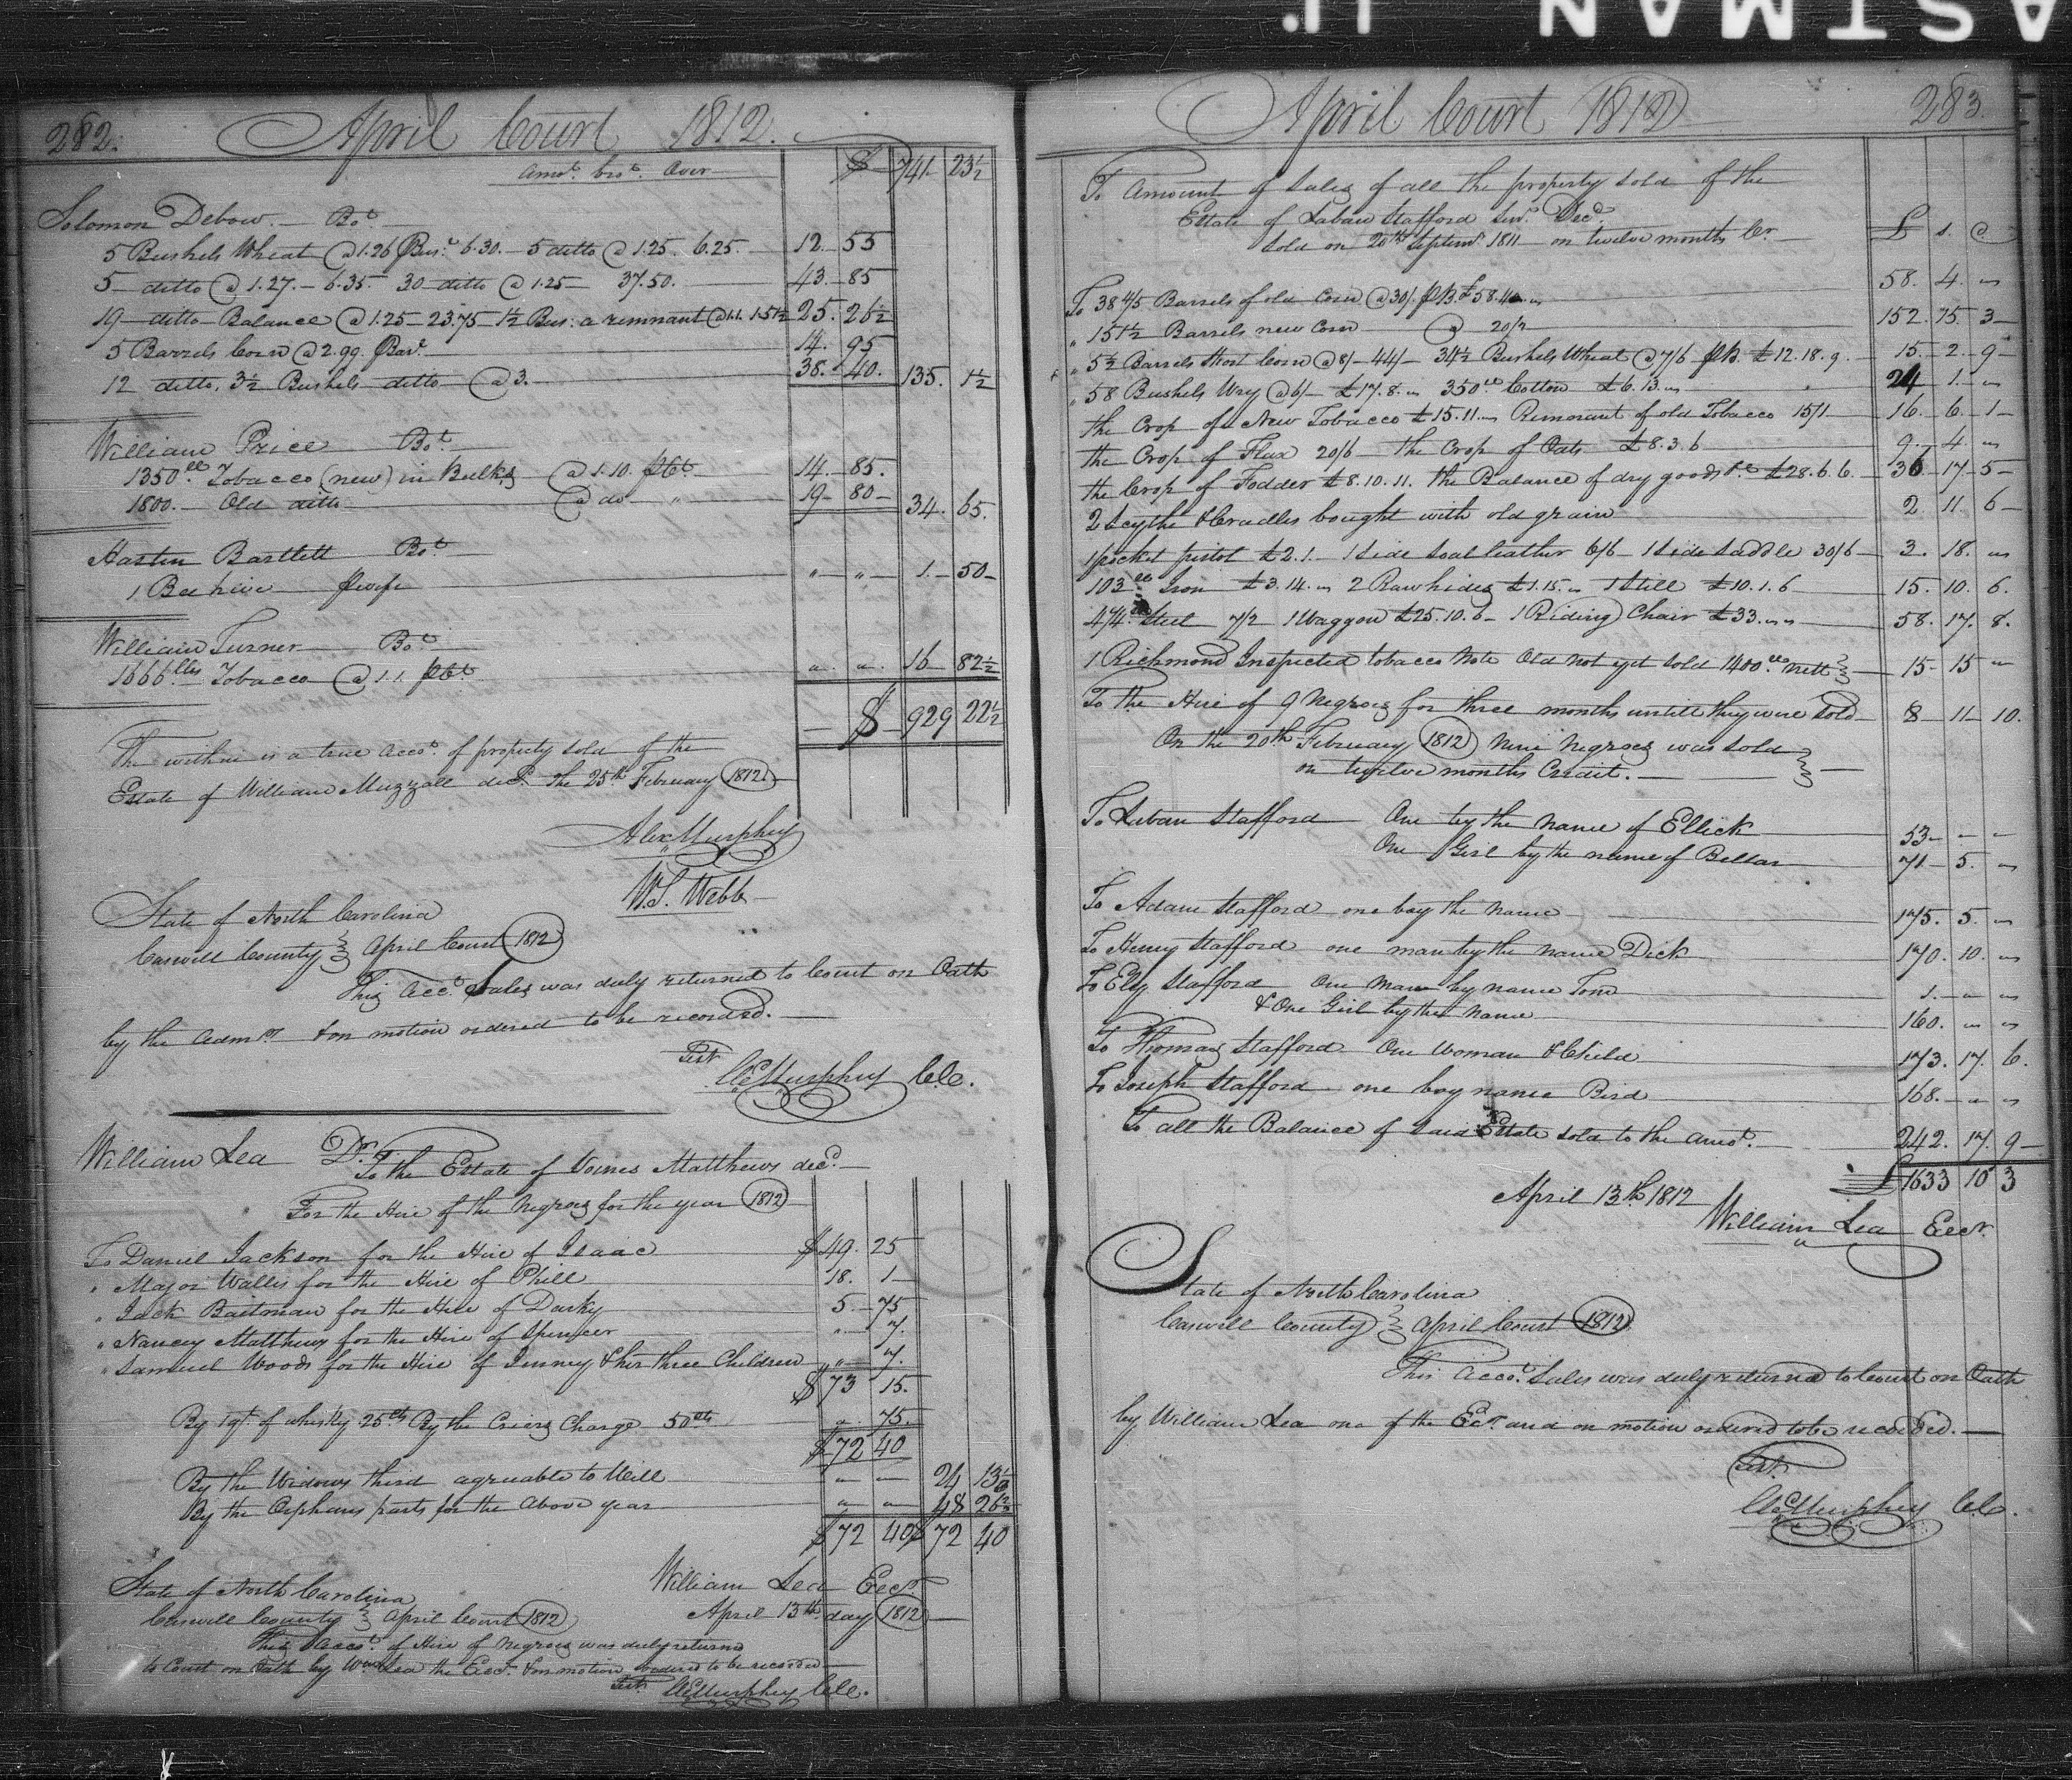 ASTMAN
282. April Court 1812.
Amot. bro't. Over $ 741. 23½
Solomon Debow Bot.
5 Bushels Wheat @ 1.26 Bus. 6.30. 5 ditto @ 1.25. 6.25. 12 55
5 ditto @ 1.27. 6.35. 30 ditto @ 1.25 37.50. 43 85
19 ditto Balance @ 1.25 23.75 1½ Bus: a remnant @ 1.1. 1.51½ 25. 26½
5 Barrels Corn @ 2.99. Bar. 14. 95
12 ditto. 3½ Bushels ditto @ 3. 38. 40. 135. 1½
William Price Bot.
1350 lb Tobacco (new) in Bulks @ 1.10. pCt 14. 85.
1800. Old ditto @ do " 19 80 34. 65.
Hasten Bartlett Bot.
1 Bee hive " " 1. 50
William Turner Bot.
1666 lbs Tobacco @ 1.1. pCt " " 16 82½
$ 929 22½
The within is a true Accot. of property sold of the
Estate of William Muzzall decd. the 25th February 1812.
Alex Murphey
W.S. Webb
State of North Carolina
Caswell County April Court 1812
This Acct. Sales was duly returned to Court on Oath
by the Admrs. & on motion ordered to be recorded.
Test
AE Murphey CCC.
William Lea Dr.
To the Estate of James Matthews decd.
For the Hire of the Negroes for the year 1812
To Daniel Jackson for the Hire of Isaac $ 49. 25
" Major Wallis for the Hire of Phill 18. 1
" Jack Baitman for the Hire of Darky 5 75
" Nancy Matthews for the Hire of Spencer " 7.
" Samuel Woods for the Hire of Jinney & her three Children " 7.
$ 73 15.
By 1 qt. of whisky 25 cts By the Criers Charge 50 cts " 75.
$ 72 40
By the Widows third agreeable to Will " " 24 13⅓
By the Orphans parts for the above year " " 48 26⅔
$ 72 40 $ 72 40
William Lea Exect.
State of North Carolina April 13th day 1812
Caswell County April Court 1812
This Accot. of Hire of Negroes was duly returned
to Court on Oath by Wm Lea the Exect. & on motion ordered to be recorded
Test. AE Murphey CCC.
April Court 1812 283
To Amount of Sales of all the property sold of the
Estate of Laban Stafford Senr. Decd.
Sold on 20th Septemr 1811 on twelve months Cr. £ s. d
To 38 4/5 Barrels of old Corn @ 30/. pB £58.4. 58. 4. "
" 151½ Barrels new Corn @ 20/2 152. 15. 3
" 5½ Barrels Short Corn @ 8/ 44/ 34½ Bushels Wheat @ 7/6 pB £12.18.9. 15. 2. 9
" 58 Bushels Wry @ 6/ £17.8. 350 lb Cotton £6.13. 24 1. "
the Crop of New Tobacco £15.11. Remorant of old Tobacco 15/1 16. 6. 1
the Crop of Flax 20/6 the Crop of Oats £8.3.6 9. 4. "
the Crop of Fodder £8.10.11. the Balance of dry goods £28.6.6. 36 17 5
2 Scythe & Cradles bought with old grain 2. 11. 6
1 pocket pistol £2.1. 1 Side Soal leather 6/6 1 Side Saddle 30/6 3. 18. "
103 lb Iron £3.14. 2 Raw hides £1.15. 1 Still £10.1.6 15. 10. 6.
4/4 Steel 7/2 1 Waggon £25.10.6 1 Riding Chair £33. 58. 17. 8.
1 Richmond Inspected tobacco Note Old not yet sold 1400 lb Nett 15 15 "
To the Hire of 9 Negroes for three months untill they were Sold 8 11 10.
On the 20th February 1812 Nine Negroes was sold
on twelve months Credit.
To Laban Stafford One by the Name of Ellick 53 " "
One Girl by the name of Bellar 71 5. "
To Adam Stafford one boy the Name 175. 5. "
To Henry Stafford one man by the Name Dick 170. 10. "
To Ely Stafford One Man by name Tom 1. " "
& One Girl by the Name 160. " "
To Thomas Stafford One Woman & Child 173. 17. 6.
To Joseph Stafford one boy name Bird 168. " "
To all the Balance of Said Estate sold to the amot. 242. 17. 9
April 13th 1812 £ 1633 10 3
William Lea Exect.
State of North Carolina
Caswell County April Court 1812
This Accot. Sales was duly returned to Court on Oath
by William Lea one of the Exct. and on motion ordered to be recorded.
Test.
AE Murphey CCC.